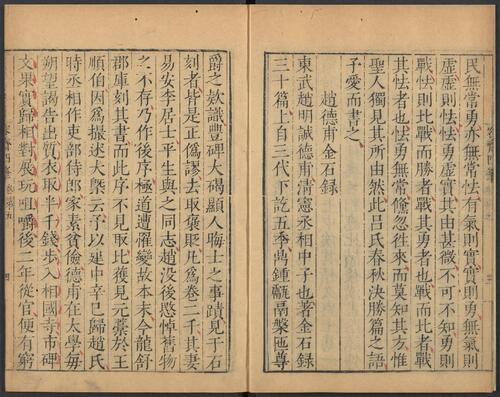 民無常勇亦無常怯有氣則實實則勇無氣則
虛虛則怯怯勇虛實其由甚微不可不知勇則
戰怯則比戰而勝者戰其勇者也戰而比者戰
其怯者也怯勇無常儵忽往來而莫知其方惟
聖人獨見其所由然此呂氏春秋決勝篇之語
予愛而書之
趙德甫金石錄
東武趙明誠德甫清憲丞相中子也著金石錄
三十篇上自三代下訖五季鼎鍾甗鬲槃匜尊
爵之欵識豐碑大碣顯人晦士之事蹟見于石
刻者皆是正僞謬去取褒貶凡爲卷二千其妻
易安李居士平生與之同志趙没後愍悼舊物
之不存乃作後序極道遭罹變故本末今龍舒
郡庫刻其書而此序不見取比獲見元藁於王
順伯因爲撮述大槩云予以建中辛巳歸趙氏
時丞相作吏部侍郎家素貧儉德甫在太學每
朔望謁告出質衣取半千錢步入相國寺市碑
文果實歸相對展玩咀嚼後二年從官便有窮
四